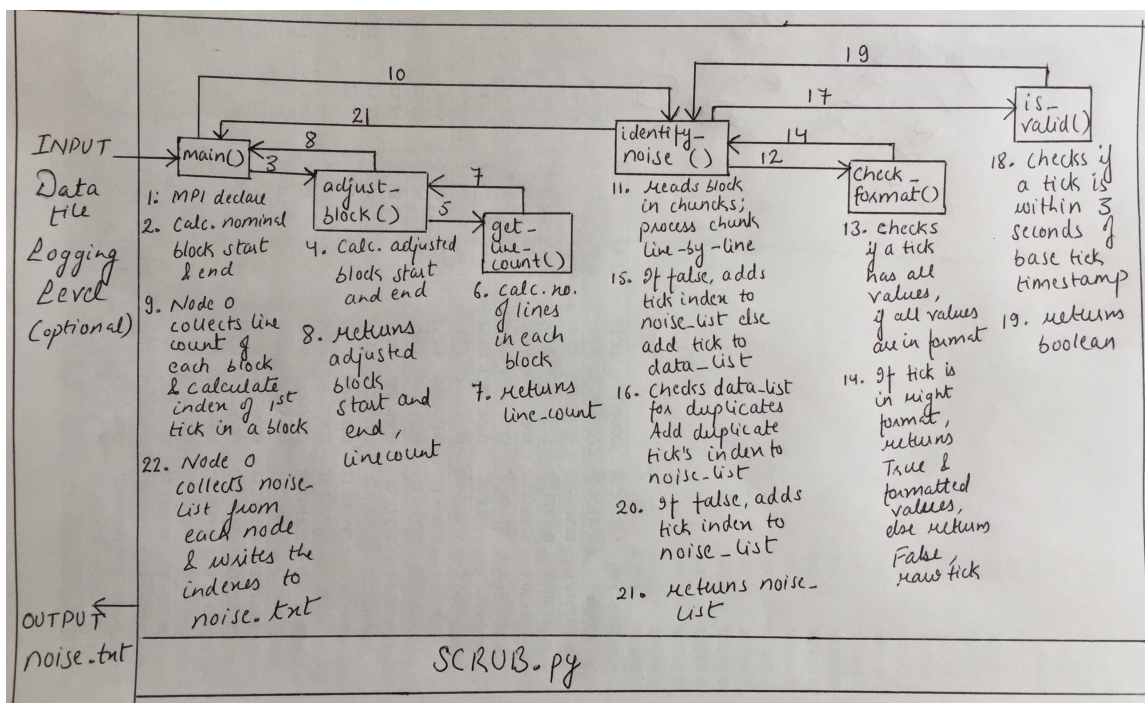 INPUT
Data
file
Logging
Level
(optional)
OUTPUT
noise.txt
10
21
8
3
main()
1: MPI declare
2. Calc. nominal
block start
& end
9. Node 0
collects line
count of
each block
& calculate
index of 1st
tick in a block
22. Node 0
collects noise
list from
each node
& writes the
indexes to
noise.txt
adjust_
block()
7
5
4. Calc. adjusted
block start
and end
8. returns
adjusted
block
start and
end,
linecount
get_
line_
count()
6. calc. no.
of lines
in each
block
7. returns
line_count
19
17
14
12
identify_
noise ()
11. reads block
in chuncks;
process chunk
line-by-line
15. If false, adds
tick index to
noise_list else
add tick to
data_list
16. Checks data_list
for duplicates
Add duplicate
tick's index to
noise_list
20. If false, adds
tick index to
noise_list
21. returns noise_
list
check_
format()
13. checks
if a tick
has all
values,
if all values
are in format
14. If tick is
in right
format,
returns
True &
formatted
values,
else return
False,
raw tick
is_
valid()
18. checks if
a tick is
within 3
seconds of
base tick
timestamp
19. returns
boolean
SCRUB.py